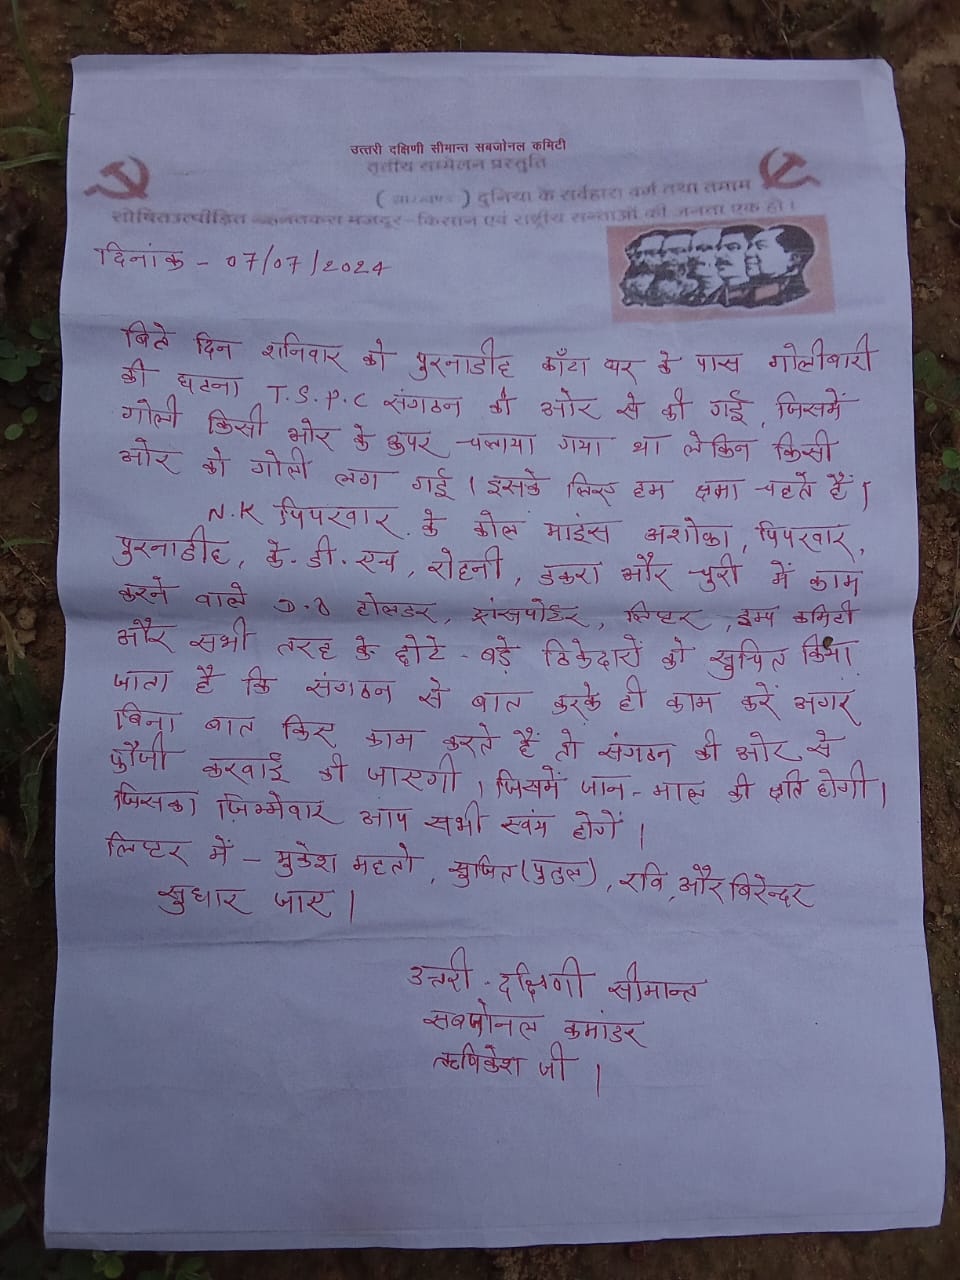 उत्तरी दक्षिणी सीमान्त सबजोनल कमिटी
तृतीय सम्मेलन प्रस्तुति
(झारखण्ड) दुनिया के सर्वहारा वर्ग तथा तमाम
शोषितउत्पीड़ित मेहनतकश मजदूर-किसान एवं राष्ट्रीय सत्ताओं की जनता एक हो।
दिनांक - 07/07/2024
बिते दिन शनिवार को पुरनाडीह काँटा घर के पास गोलीबारी
की घटना T.S.P.C संगठन की ओर से की गई, जिसमें
गोली किसी और के ऊपर चलाया गया था लेकिन किसी
और को गोली लग गई। इसके लिए हम क्षमा चहते हैं।
N.K पिपरवार के कोल माइंस अशोका, पिपरवार,
पुरनाडीह, के.डी.एच, रोहनी, डकरा और चुरी में काम
करने वाले D.O होलडर, ट्रांसपोर्टर, लिफ्टर, डम्प कमिटी
और सभी तरह के छोटे-बड़े ठिकेदारों को सुचित किया
जाता है कि संगठन से बात करके ही काम करें अगर
बिना बात किए काम करते हैं तो संगठन की ओर से
फौजी करवाई की जाएगी, जिसमें जान-माल की क्षति होगी।
जिसका जिम्मेवार आप सभी स्वंय होगें।
लिफ्टर में - मुकेश महतो, सुजित (पुतुल), रवि, और बिरेन्दर
सुधार जाए।
उत्तरी-दक्षिणी सीमान्त
सबजोनल कमांडर
ऋषिकेश जी।